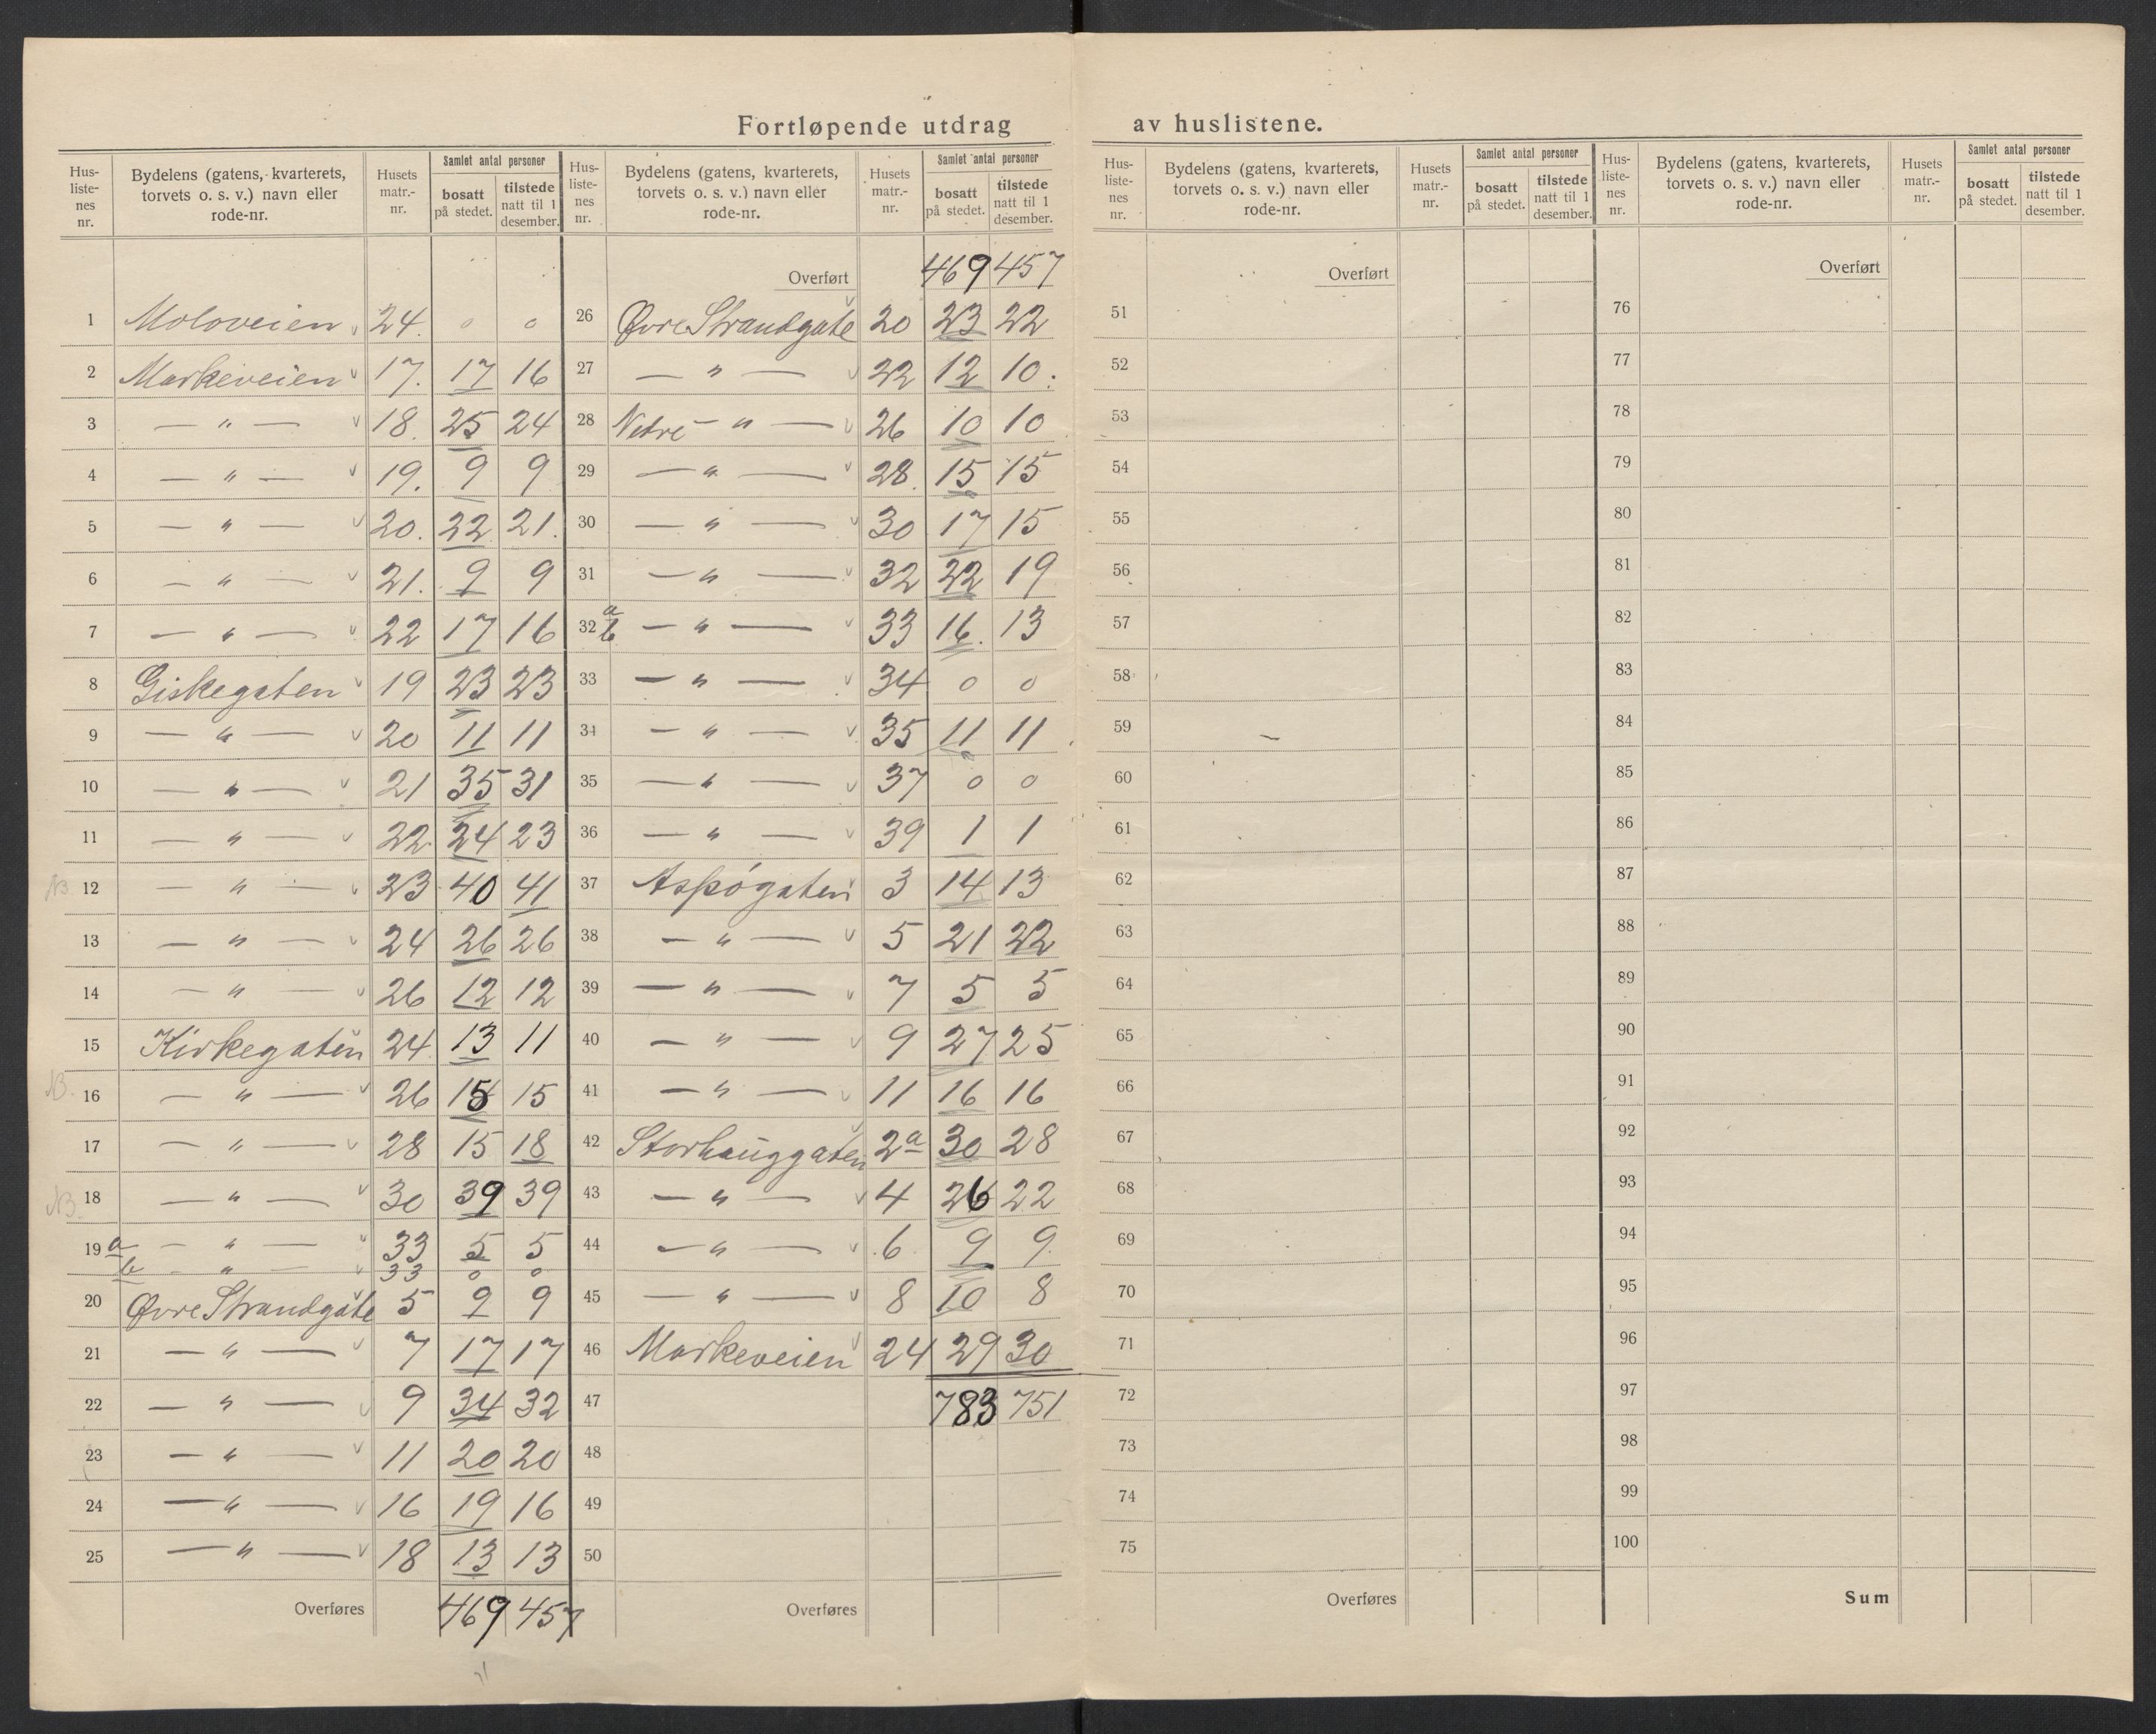 Fortløpende utdrag av huslistene.
Hus-listenes nr. | Bydelens (gatens, kvarterets, torvets o. s. v.) navn eller rode-nr. | Husets matr.-nr. | Samlet antal personer | bosatt på stedet. | tilstede natt til 1 desember.
1 Moloveien 24. 0 0
2 Markeveien 17. 17 16
3 — " — 18. 25 24
4 — " — 19. 9 9
5 — " — 20. 22 21.
6 — " — 21. 9 9
7 — " — 22 17 16
8 Giskegaten 19 23 23
9 — " — 20 11 11
10 — " — 21 35 31
11 — " — 22 24 23
NB 12 — " — 23 40 41
13 — " — 24 26 26
14 — " — 26 12 12
15 Kirkegaten 24 13 11
NB. 16 — " — 26 18 15
17 — " — 28 15 18
NB. 18 — " — 30 39 39
19 a — " — 33 5 5
b — " — 33 0 0
20 Øvre Strandgate 5 9 9
21 — " — 7 17 17
22 — " — 9 34 32
23 — " — 11 20 20
24 — " — 16 19 16
25 — " — 18 13 13
Overføres 469 457
Hus-listenes nr. | Bydelens (gatens, kvarterets, torvets o. s. v.) navn eller rode-nr. | Husets matr.-nr. | Samlet antal personer | bosatt på stedet. | tilstede natt til 1 desember.
Overført 469 457
26 Øvre Strandgate 20 23 22
27 — " — 22 12 10.
28 Nedre — " — 26 10 10
29 — " — 28. 15 15
30 — " — 30 17 15
31 — " — 32 22 19
32 a b — " — 33 16. 13
33 — " — 34 0 0
34 — " — 35 11 11
35 — " — 37 0 0
36 — " — 39 1 1
37 Aspøgaten 3 14 13
38 — " — 5 21 22
39 — " — 7 5 5
40 — " — 9 27 25
41 — " — 11 16 16
42 Storhauggaten 2a 30 28
43 — " — 4 26 22
44 — " — 6 9 9
45 — " — 8 10 8
46 Markeveien 24 29 30
47 783 751
48
49
50
Overføres
Hus-listenes nr. | Bydelens (gatens, kvarterets, torvets o. s. v.) navn eller rode-nr. | Husets matr.-nr. | Samlet antal personer | bosatt på stedet. | tilstede natt til 1 desember.
Overført
51
52
53
54
55
56
57
58
59
60
61
62
63
64
65
66
67
68
69
70
71
72
73
74
75
Overføres
Hus-listenes nr. | Bydelens (gatens, kvarterets, torvets o. s. v.) navn eller rode-nr. | Husets matr.-nr. | Samlet antal personer | bosatt på stedet. | tilstede natt til 1 desember.
Overført
76
77
78
79
80
81
82
83
84
85
86
87
88
89
90
91
92
93
94
95
96
97
98
99
100
Sum